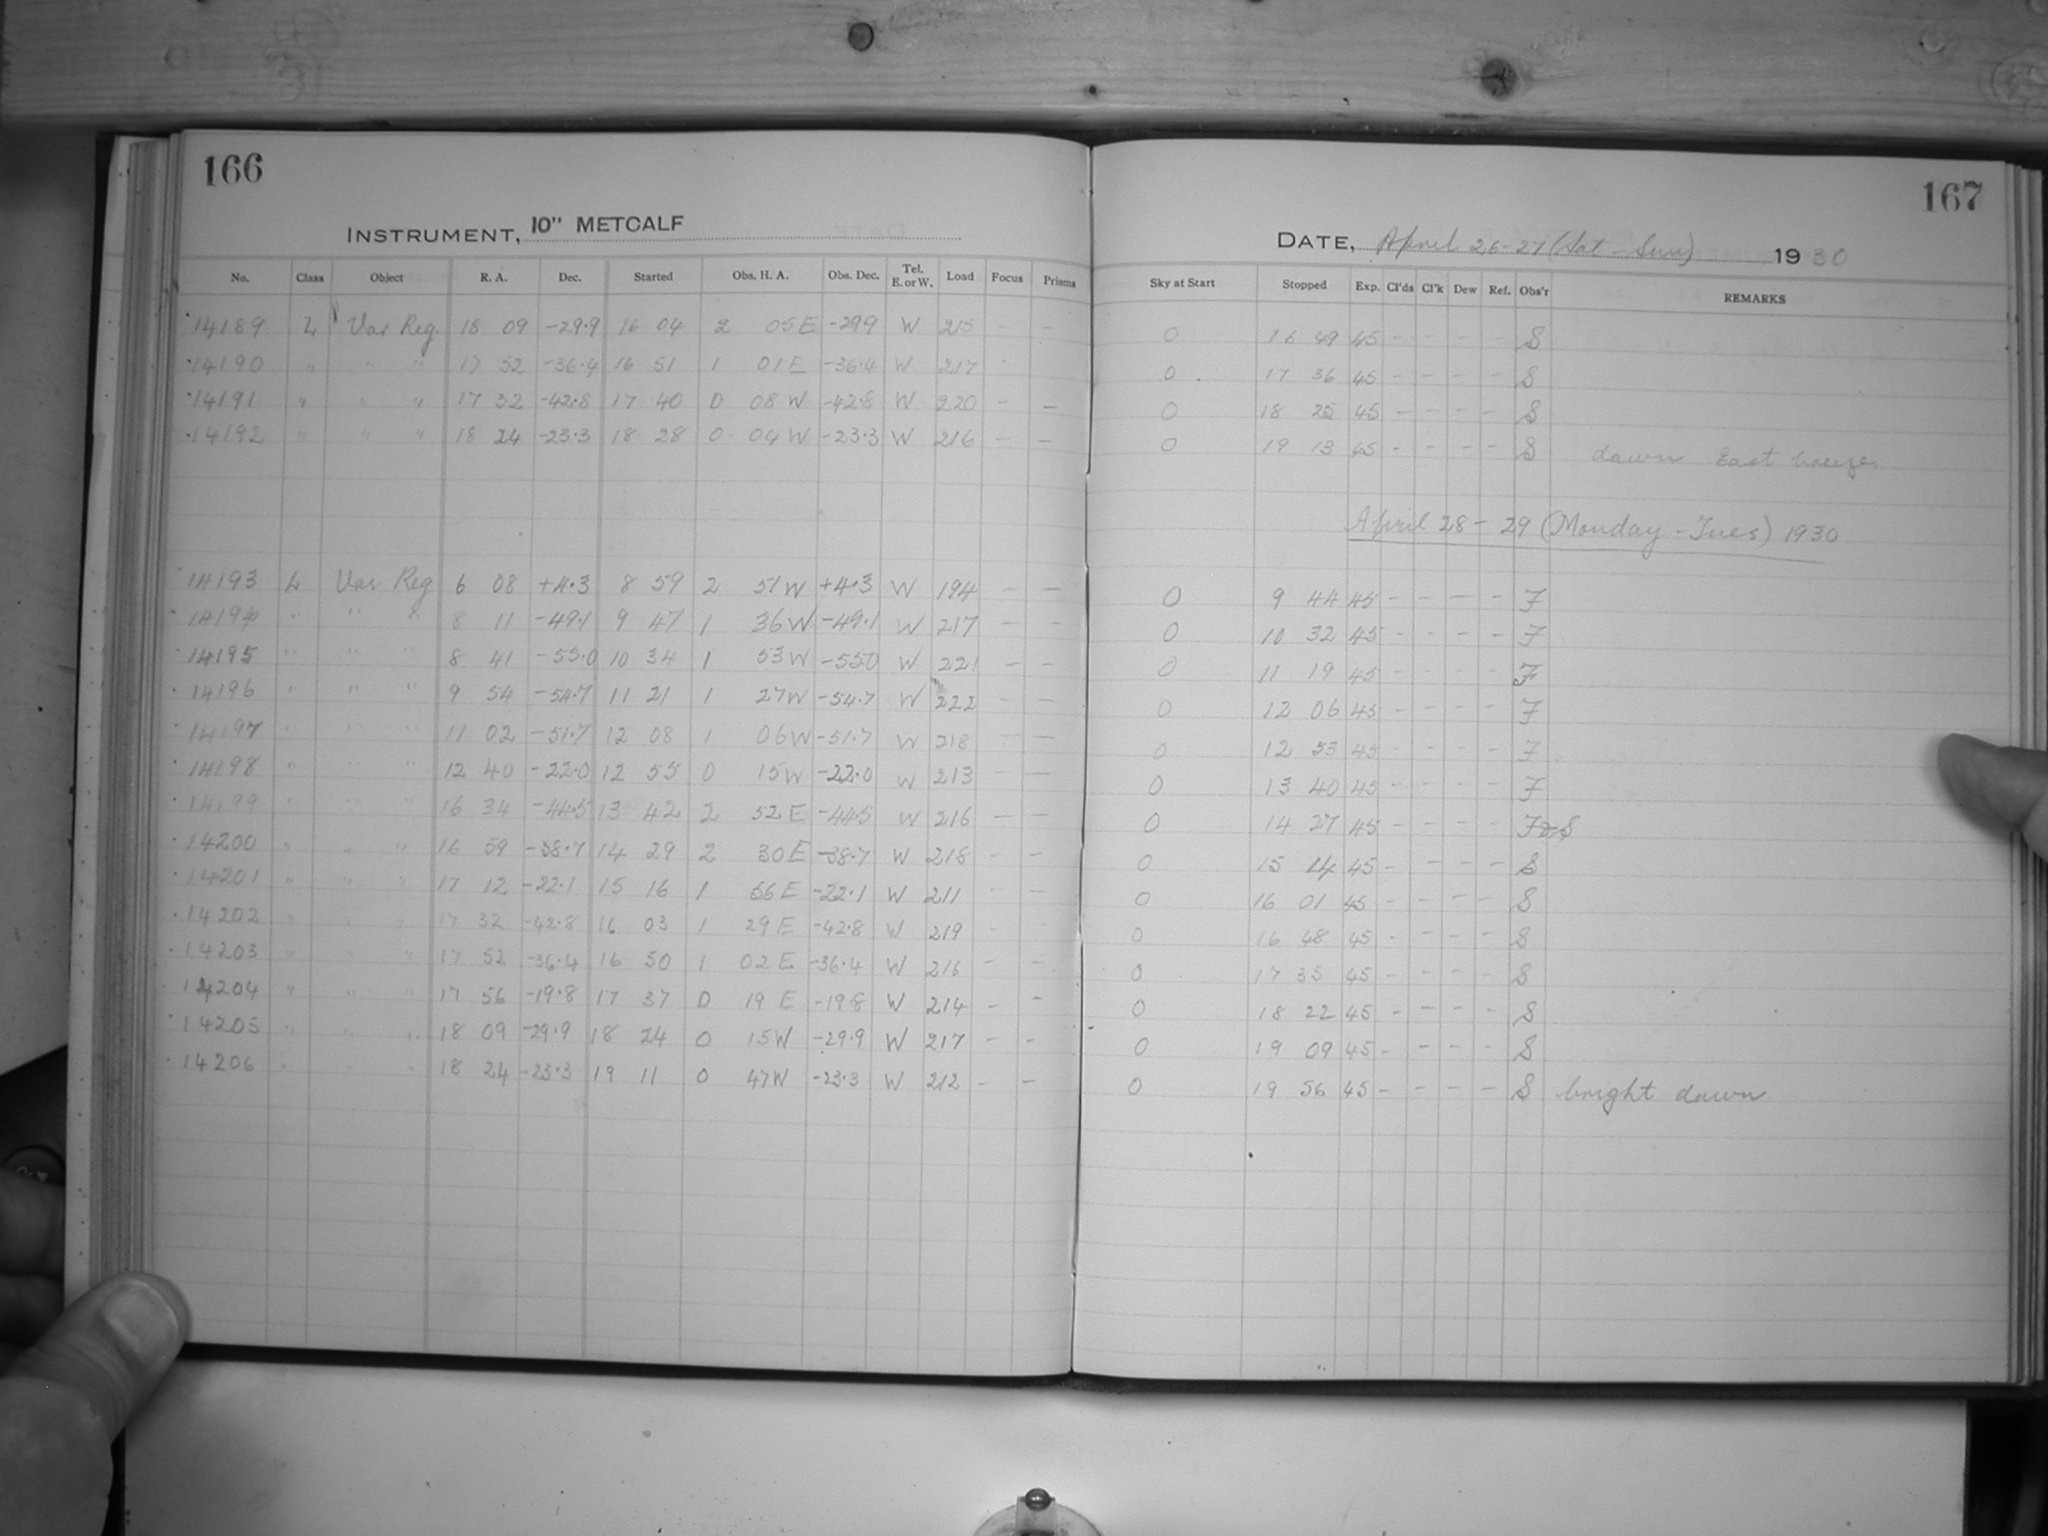 166
INSTRUMENT, 10" METCALF
No. Class Object R. A. Dec. Started Obs. H. A. Obs. Dec. Tel. E. or W. Load Focus Prisms
14189 L Var Reg. 18 09 -29.9 16 04 2 05 E -299 W 215 - -
14190 " " " 17 52 -36.4 16 51 1 01 E -36.4 W 217
14191 " " " 17 32 -42.8 17 40 0 08 W -42.8 W 220 - -
14192 " " " 18 24 -23.3 18 28 0 04 W -23.3 W 216 - -
14193 L Var Reg 6 08 +4.3 8 59 2 51 W +4.3 W 194 - -
14194 " " " 8 11 -49.1 9 47 1 36 W -49.1 W 217 - -
14195 " " " 8 41 -55.0 10 34 1 53 W -550 W 221 - -
14196 " " " 9 54 -54.7 11 21 1 27 W -54.7 W 222 - -
14197 " " " 11 02 -51.7 12 08 1 06 W -51.7 W 218 - -
14198 " " " 12 40 -22.0 12 55 0 15 W -22.0 W 213 -
14199 " " " 16 34 -44.5 13 42 2 52 E -44.5 W 216 - -
14200 " " " 16 59 -38.7 14 29 2 30 E -38.7 W 218 - -
14201 " " " 17 12 -22.1 15 16 1 56 E -22.1 W 211 - -
14202 " " " 17 32 -42.8 16 03 1 29 E -42.8 W 219 -
14203 " " " 17 52 -36.4 16 50 1 02 E -36.4 W 216 - -
14204 " " " 17 56 -19.8 17 37 0 19 E -19.8 W 214 - -
14205 " " " 18 09 -29.9 18 24 0 15 W -29.9 W 217 - -
14206 " " " 18 24 -23.3 19 11 0 47 W -23.3 W 212 - -
167
DATE, April 26-27 (Sat - Sun) 1930
Sky at Start Stopped Exp. Cl'ds Cl'k Dew Ref. Obs'r REMARKS
0 16 49 45 - - - - S
0 17 36 45 - - - - S
0 18 25 45 - - - - S
0 19 13 45 - - - - S dawn East breeze.
April 28 - 29 (Monday - Tues) 1930
0 9 44 45 - - - - F
0 10 32 45 - - - - F
0 11 19 45 - - - - F
0 12 06 45 - - - - F
0 12 53 45 - - - - F
0 13 40 45 - - - - F
0 14 27 45 - - - - F & S
0 15 14 45 - - - - S
0 16 01 45 - - - - S
0 16 48 45 - - - - S
0 17 35 45 - - - - S
0 18 22 45 - - - - S
0 19 09 45 - - - - S
0 19 56 45 - - - - S bright dawn.